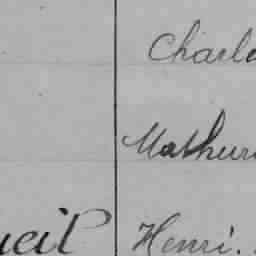 Charle
Mathuri
ueil Henri.